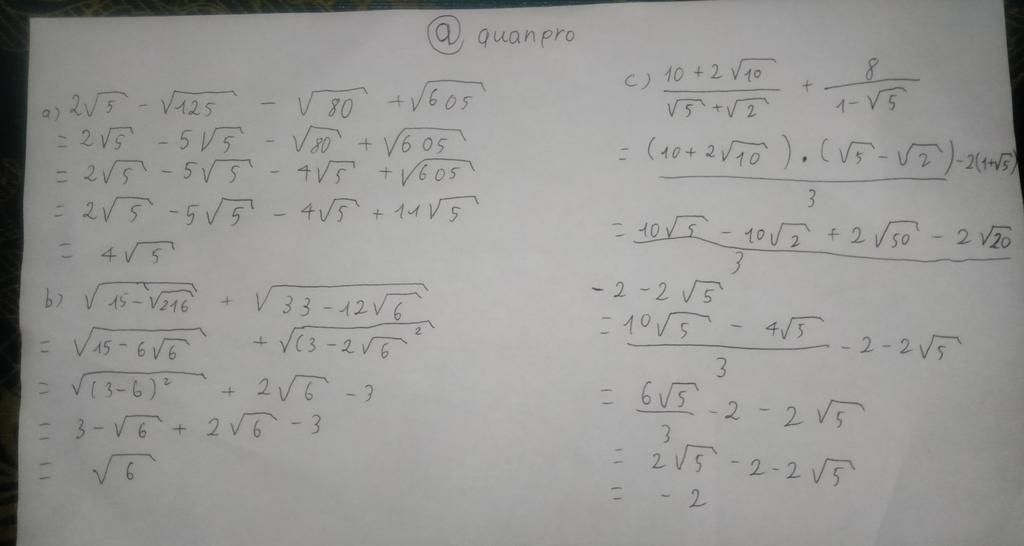 @ quanpro
a) 2√5 - √125 - √80 + √605
= 2√5 - 5√5 - √80 + √605
= 2√5 - 5√5 - 4√5 + √605
= 2√5 - 5√5 - 4√5 + 11√5
= 4√5
b) √(15-√216) + √(33-12√6)
= √(15-6√6) + √((3-2√6²)
= √((3-6)²) + 2√6 - 3
= 3-√6 + 2√6 - 3
= √6
c) (10+2√10)/(√5+√2) + 8/(1-√5)
= ((10+2√10).(√5-√2))/3 - 2(1+√5)
= (10√5 - 10√2 + 2√50 - 2√20)/3
-2-2√5
= (10√5 - 4√5)/3 - 2 - 2√5
= 6√5/3 - 2 - 2√5
= 2√5 - 2 - 2√5
= -2